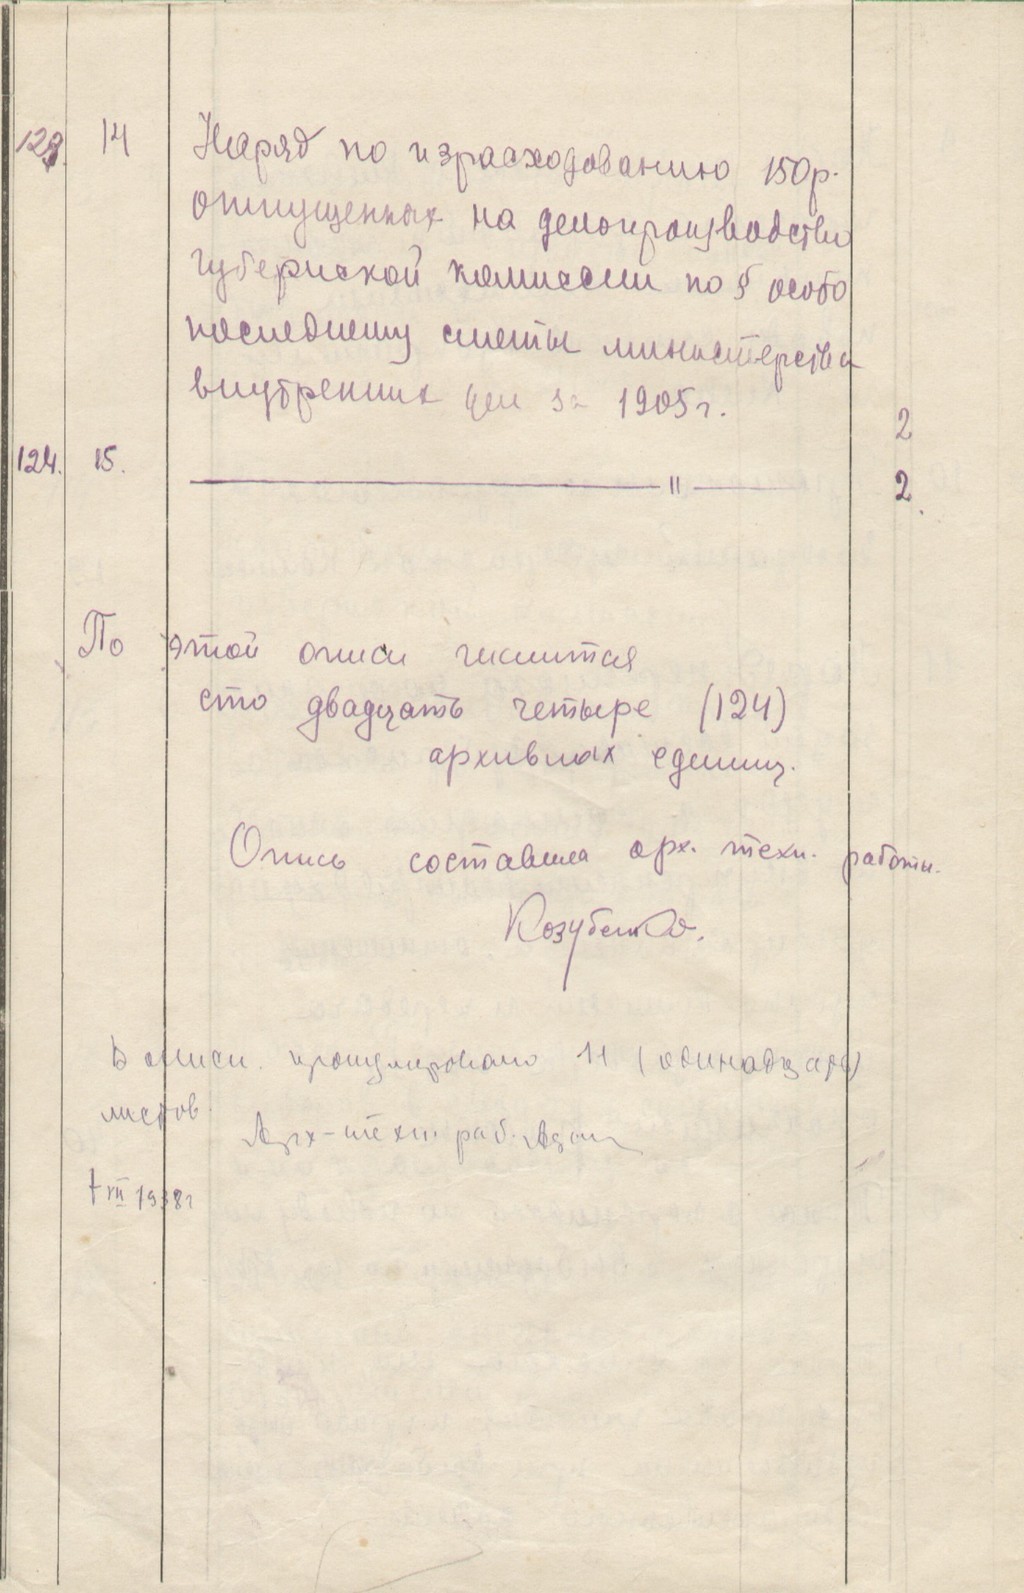 123. 14 Наряд по израсходованию 150р.
отпущенных на делопроизводство
губернской комиссии по § особо
последнему сметы министерства
внутренних дел за 1905г. 2
124. 15. ———— " ———— 2.
По этой описи числится
сто двадцать четыре (124)
архивных единиц.
Опись составила арх. техн. работн.
Козубенко.
В описи пронумеровано 11 (одинадцать)
листов
Арх-техн. раб.
VII 1938г